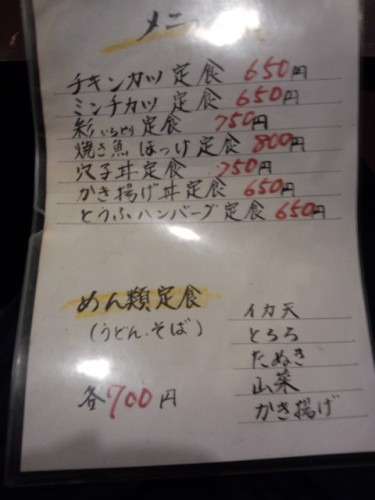 メニュー
チキンカツ定食 650円
ミンチカツ定食 650円
彩いろどり定食 750円
焼き魚 ほっけ定食 800円
穴子丼定食 750円
かき揚げ丼定食 650円
とうふハンバーグ定食 650円
めん類定食
(うどん.そば)
各700円
イカ天
とろろ
たぬき
山菜
かき揚げ